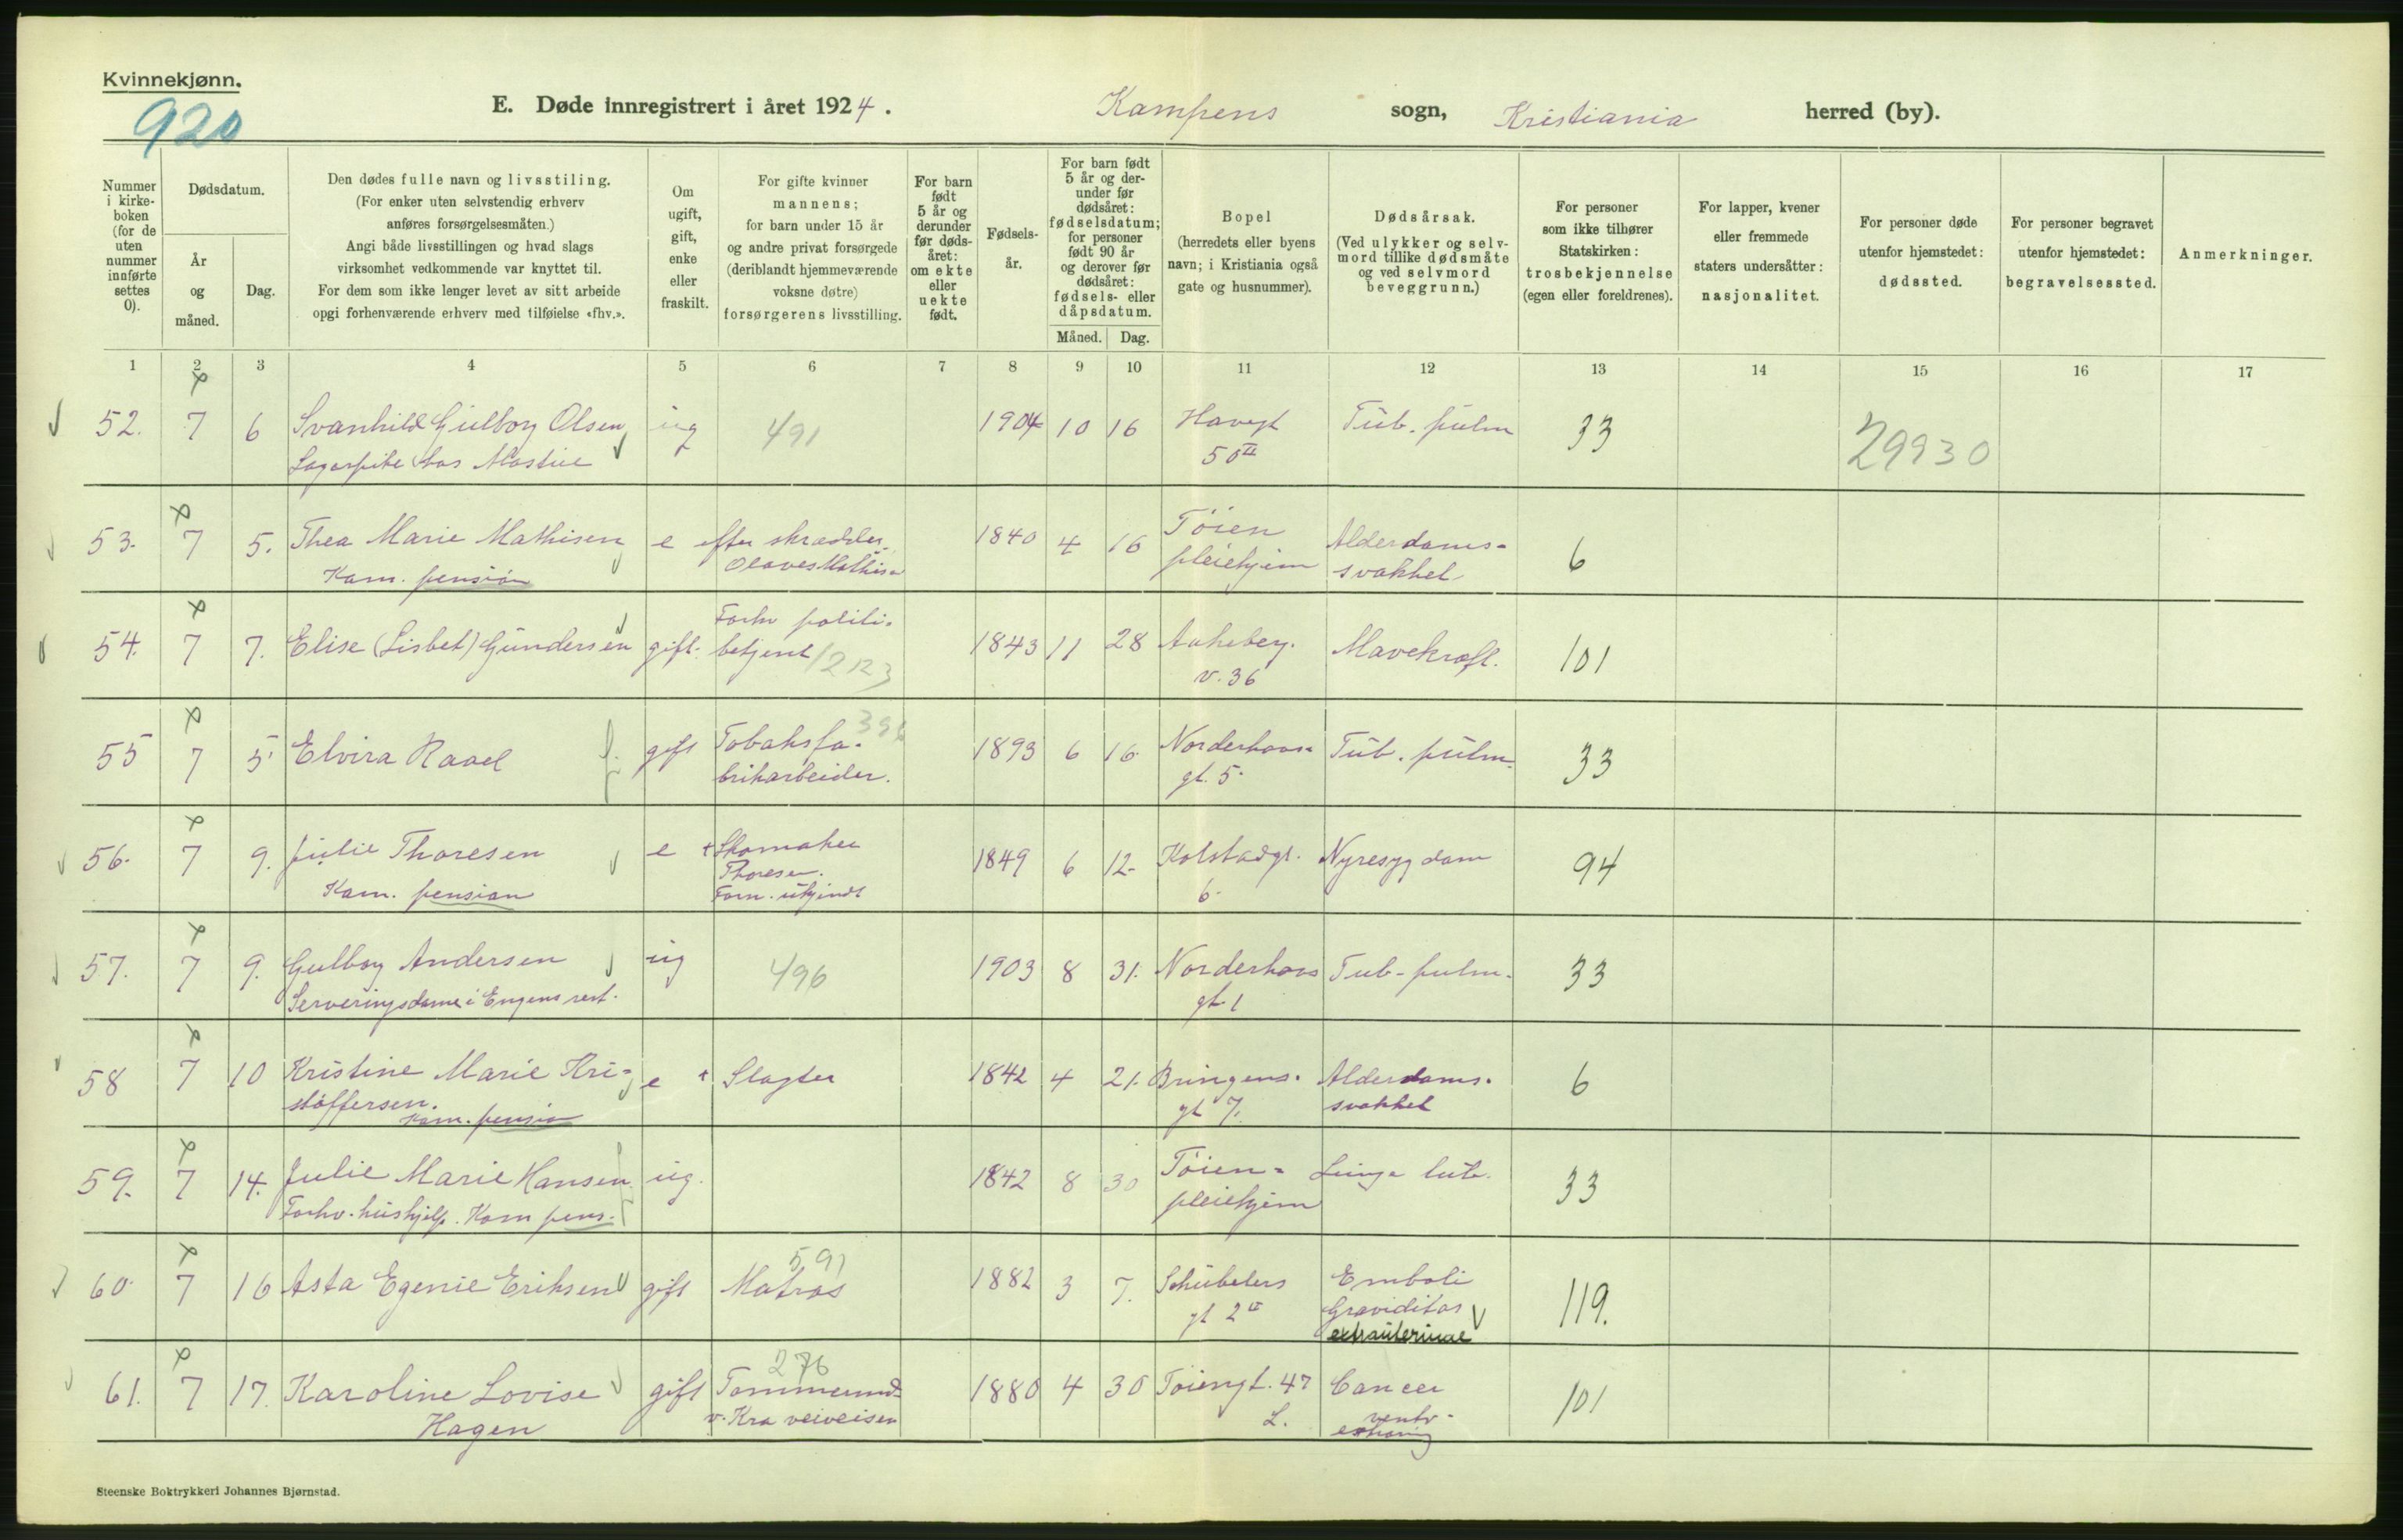 Kvinnekjønn.
920
E. Døde innregistrert i året 1924. Kampens sogn, Kristiania herred (by).
Nummer i kirke- boken (for de uten nummer innførte settes 0).
Dødsdatum.
År og måned.
Dag.
Den dødes fulle navn og livsstiling.
(For enker uten selvstendig erhverv
anføres forsørgelsesmåten.)
Angi både livsstillingen og hvad slags
virksomhet vedkommende var knyttet til.
For dem som ikke lenger levet av sitt arbeide
opgi forhenværende erhverv med tilføielse «fhv.».
Om ugift, gift, enke eller fraskilt.
For gifte kvinner
mannens;
for barn under 15 år
og andre privat forsørgede
(deriblandt hjemmeværende
voksne døtre)
forsørgerens livsstilling.
For barn født 5 år og derunder før døds- året: om ekte eller uekte født.
Fødsels- år.
For barn født 5 år og der- under før dødsåret: fødselsdatum; for personer født 90 år og derover før dødsåret: fødsels- eller dåpsdatum.
Måned. Dag.
Bopel
(herredets eller byens
navn; i Kristiania også
gate og husnummer).
Dødsårsak.
(Ved ulykker og selv-
mord tillike dødsmåte
og ved selvmord
beveggrunn.)
For personer
som ikke tilhører
Statskirken:
trosbekjennelse
(egen eller foreldrenes).
For lapper, kvener
eller fremmede
staters undersåtter:
nasjonalitet.
For personer døde
utenfor hjemstedet:
dødssted.
For personer begravet
utenfor hjemstedet:
begravelsessted.
Anmerkninger.
1 2 3 4 5 6 7 8 9 10 11 12 13 14 15 16 17
52. 7 6 Svanhild Gulborg Olsen ug 491 1904 10 16 Havegt Tub. pulm 33 29930
Lagerpike hos 50 II
53. 7 5. Thea Marie Mathisen e efter skrædder 1840 4 16 Tøien Alderdoms- 6
Kom. pension Olaves Mathisen pleiehjem svakhet
54. 7 7. Elise (Lisbet) Gundersen gift. Forhv politi- 1843 11 28 Aakeberg. Mavekræft. 101
betjent v. 36
55 7 5 Elvira Raael gift Tobaksfa- 1893 6 16. Norderhovs- Tub. pulm. 33
brikarbeider. gt. 5.
56. 7 9. Julie Thoresen e + Skomaker 1849 6 12. Kolstadgt. Nyresygdom 94
Kom. pension Thoresen. 6.
Forn. ukjendt
57. 7 9. Gulborg Andersen ug 496 1903 8 31. Norderhovs Tub. pulm. 33
Serveringsdame i Engens rest. gt. 1
58 7 10 Kristine Marie Kri- e + Slagter 1842 4 21. Bringens- Alderdoms- 6
stoffersen. Kom. pension gt 7. svakhet
59. 7 14. Julie Marie Hansen ug. 1842 8 30 Tøien- Lunge tub. 33
Forhv. hushjelp. Kom pens. pleiehjem
60. 7 16 Asta Egenie Eriksen gift 591 Matros 1882 3 7. Schübelers Emboli 119.
gt 2 II Graviditas
extrauterinae
61. 7 17. Karoline Lovise gift 276 Tømmermd. 1880 4 30 Tøiengt. 47 Cancer 101
Hagen v. Kra veiveisen L. ventr.
Steenske Boktrykkeri Johannes Bjørnstad.